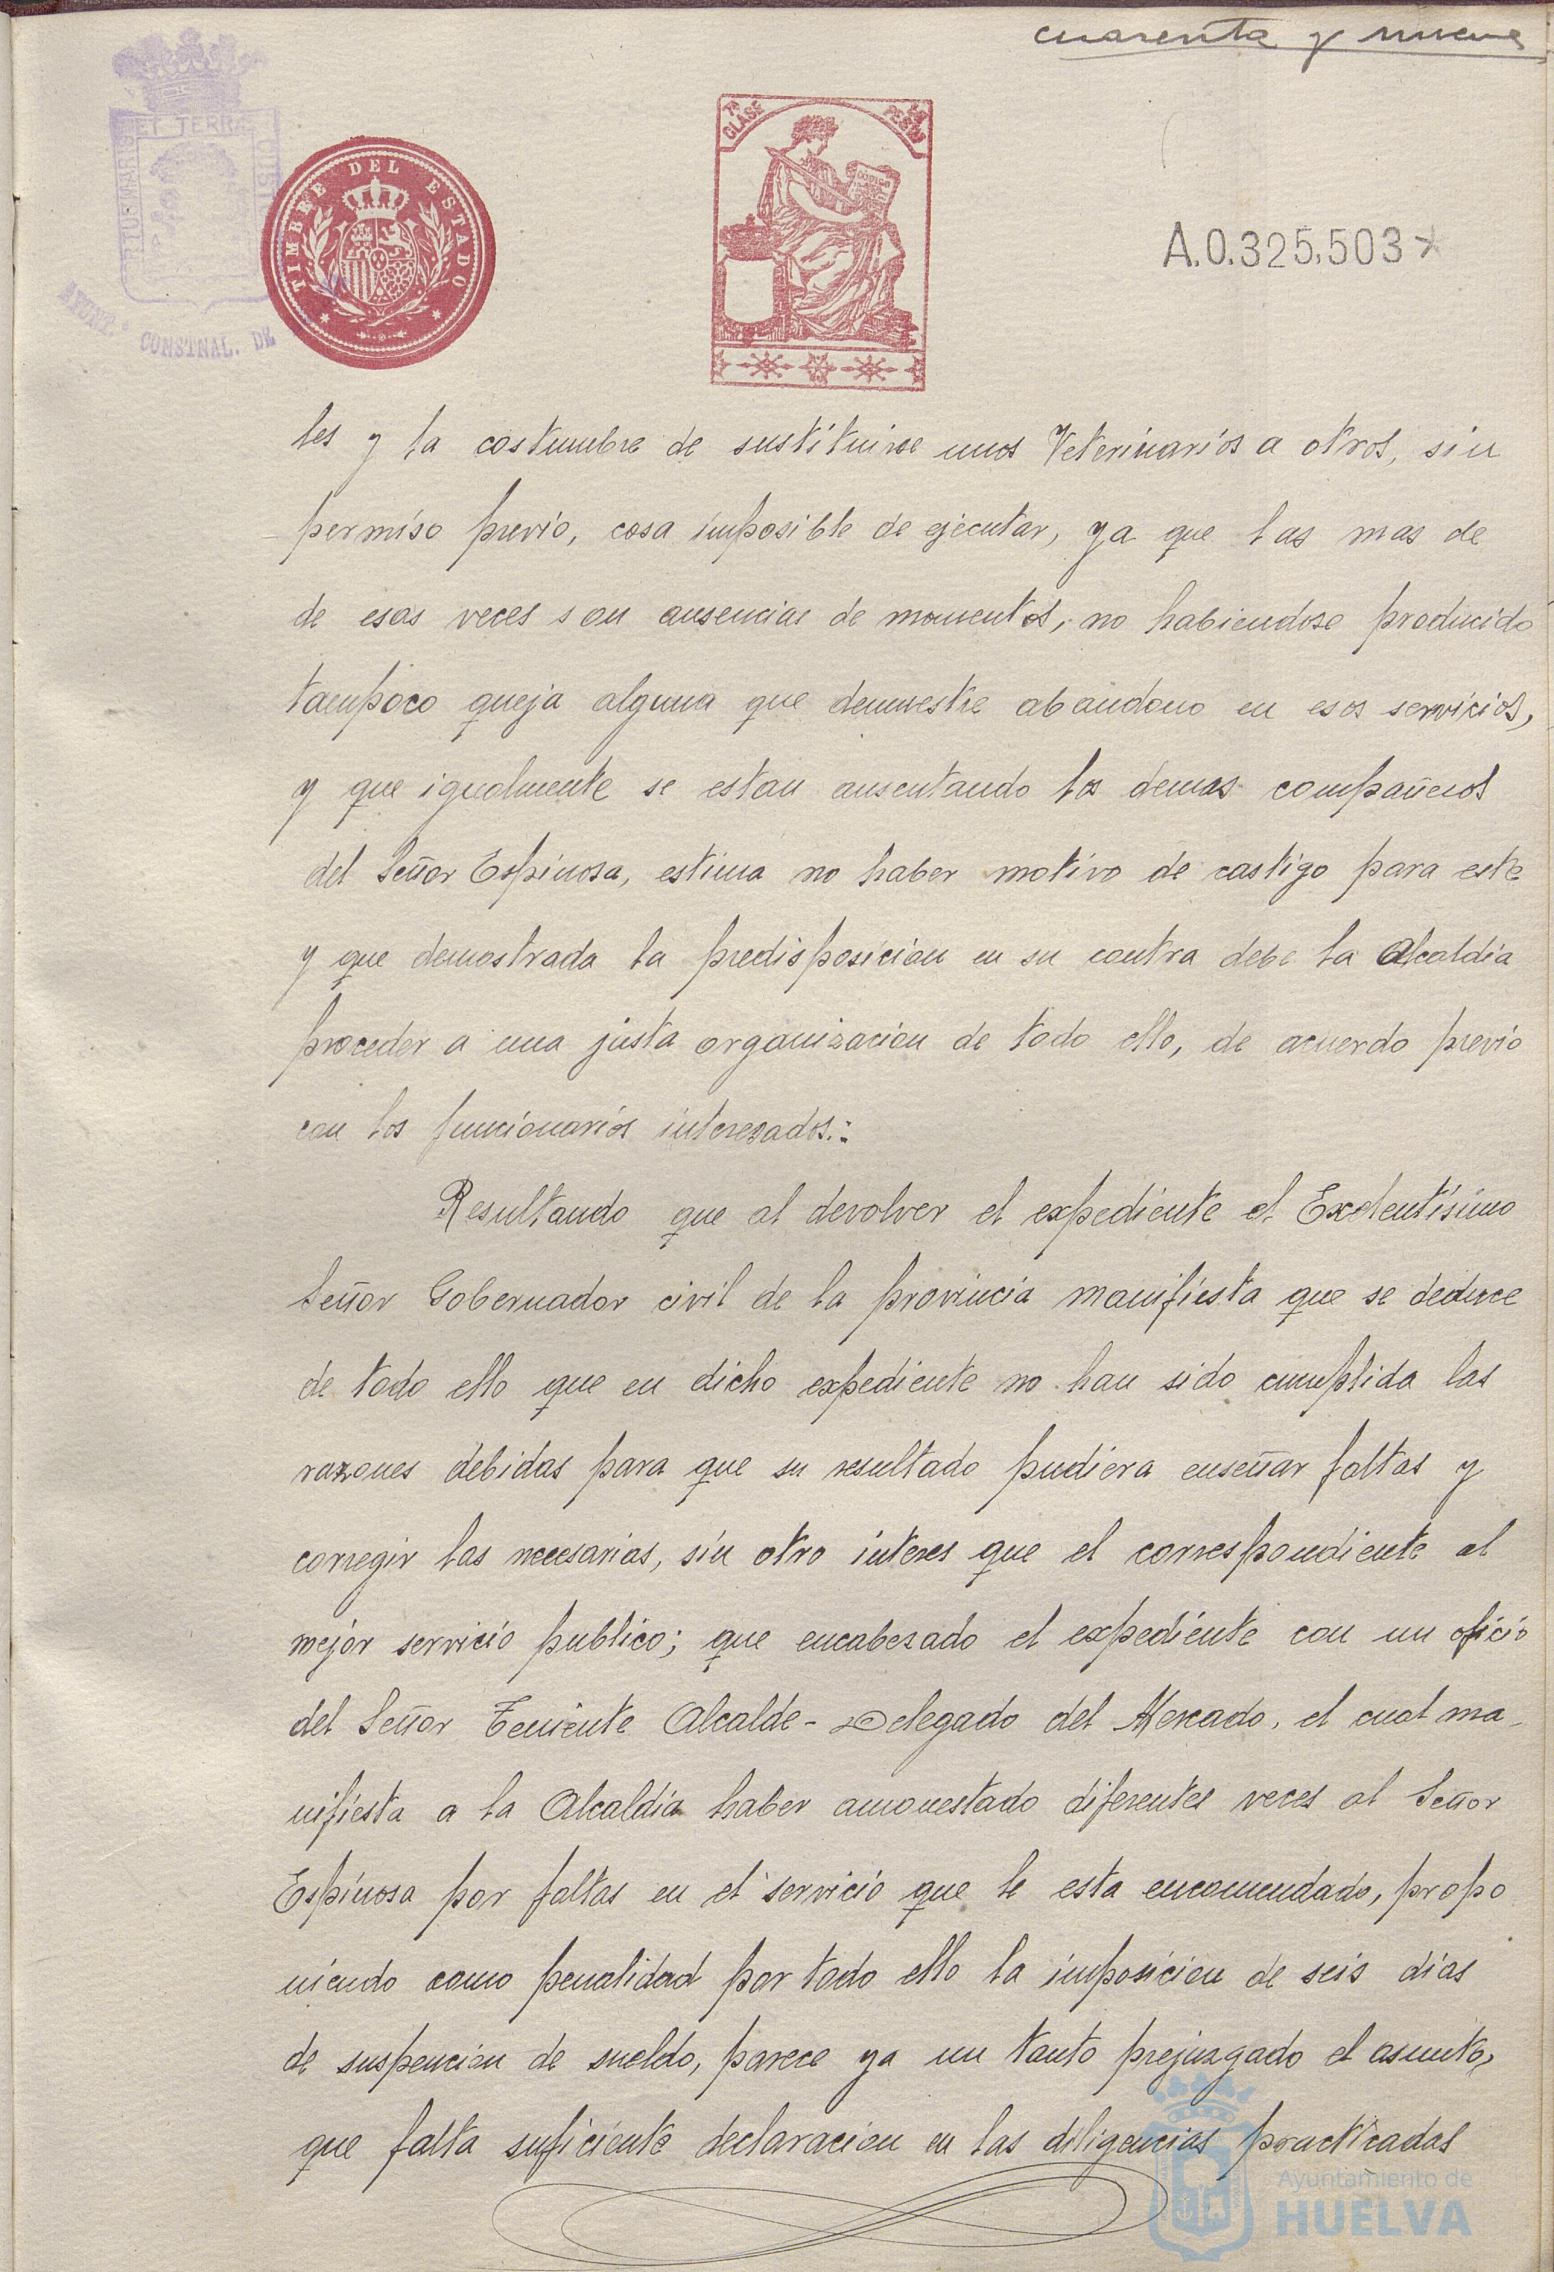 cuarenta y nueve
ET TERRÆ
AYUNT.º CONSTNAL. DE
TIMBRE DEL ESTADO
7ª CLASE
CODIGO
A.0.325.503*
les y la costumbre de sustituirse unos Veterinarios a otros, sin
permiso previo, cosa imposible de ejecutar, ya que las mas de
de esas veces son ausencias de momentos, no habiendose producido
tampoco queja alguna que demuestre abandono en esos servicios,
y que igualmente se estan ausentando los demas compañeros
del Señor Espinosa, estima no haber motivo de castigo para este
y que demostrada la predisposicion en su contra debe la Alcaldia
proceder a una justa organizacion de todo ello, de acuerdo previo
con los funcionarios interesados.:
Resultando que al devolver el expediente el Exelentisimo
Señor Gobernador civil de la provincia manifiesta que se deduce
de todo ello que en dicho expediente no han sido cumplida las
razones debidas para que su resultado pudiera enseñar faltas y
corregir las necesarias, sin otro interes que el correspondiente al
mejor servicio publico; que encabezado el expediente con un oficio
del Señor Teniente Alcalde-Delegado del Mercado, el cual ma-
nifiesta a la Alcaldia haber amonestado diferentes veces al Señor
Espinosa por faltas en el servicio que le esta encomendado, propo
niendo como penalidad por todo ello la imposicion de seis dias
de suspencion de sueldo, parece ya un tanto prejuzgado el asunto,
que falta suficiente declaracion en las diligencias practicadas
Ayuntamiento de
HUELVA